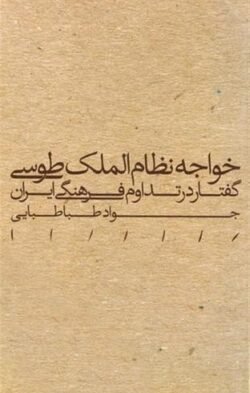 خواجه نظام الملک طوسی
گفتار در تداوم فرهنگی ایران
جواد طباطبایی